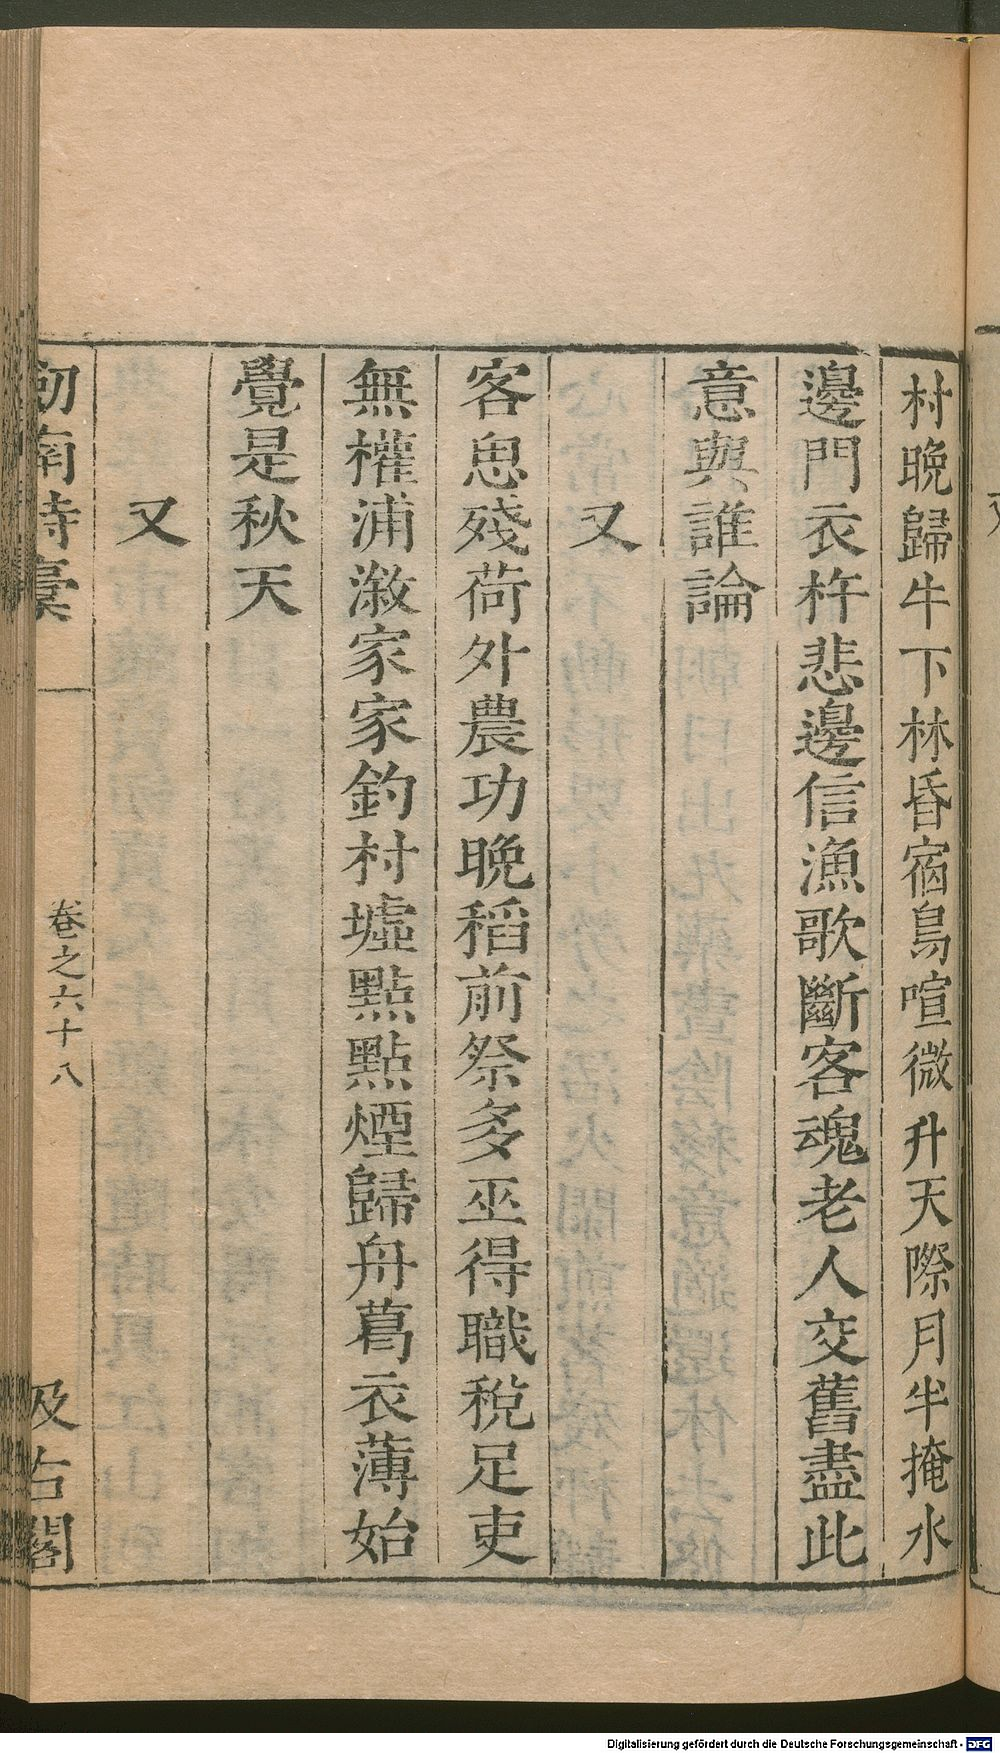 村晚歸牛下林昏宿鳥喧微升天際月半掩水
邊門衣杵悲邊信漁歌斷客魂老人交舊盡此
意與誰論
又
客思殘荷外農功晚稻前祭多巫得職稅足吏
無權浦漵家家釣村墟點點煙歸舟葛衣薄始
覺是秋天
又
劒南詩稾
卷之六十八
汲古閣
Digitalisierung gefördert durch die Deutsche Forschungsgemeinschaft - DFG